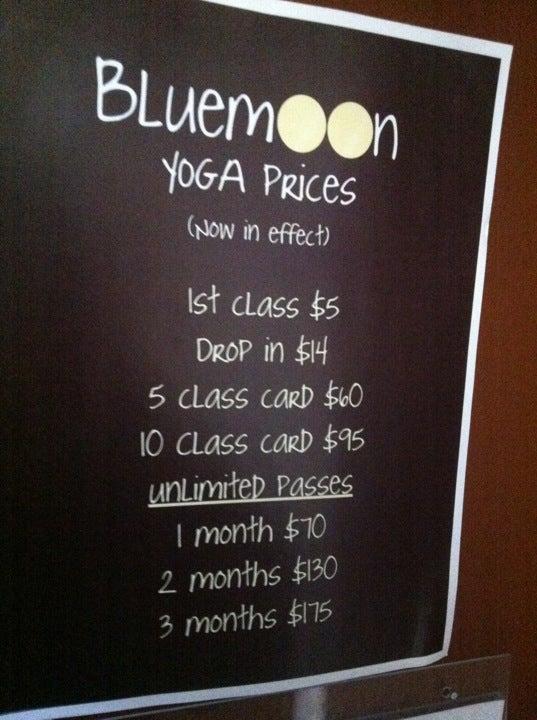 Bluemoon
YOGA Prices
(Now in effect)
1st class $5
Drop in $14
5 class card $60
10 class card $95
unlimited passes
1 month $70
2 months $130
3 months $175